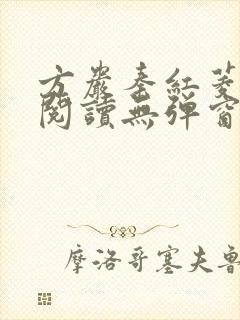 方巖秦紅菱
閱讀無彈窗
摩洛哥塞夫魯